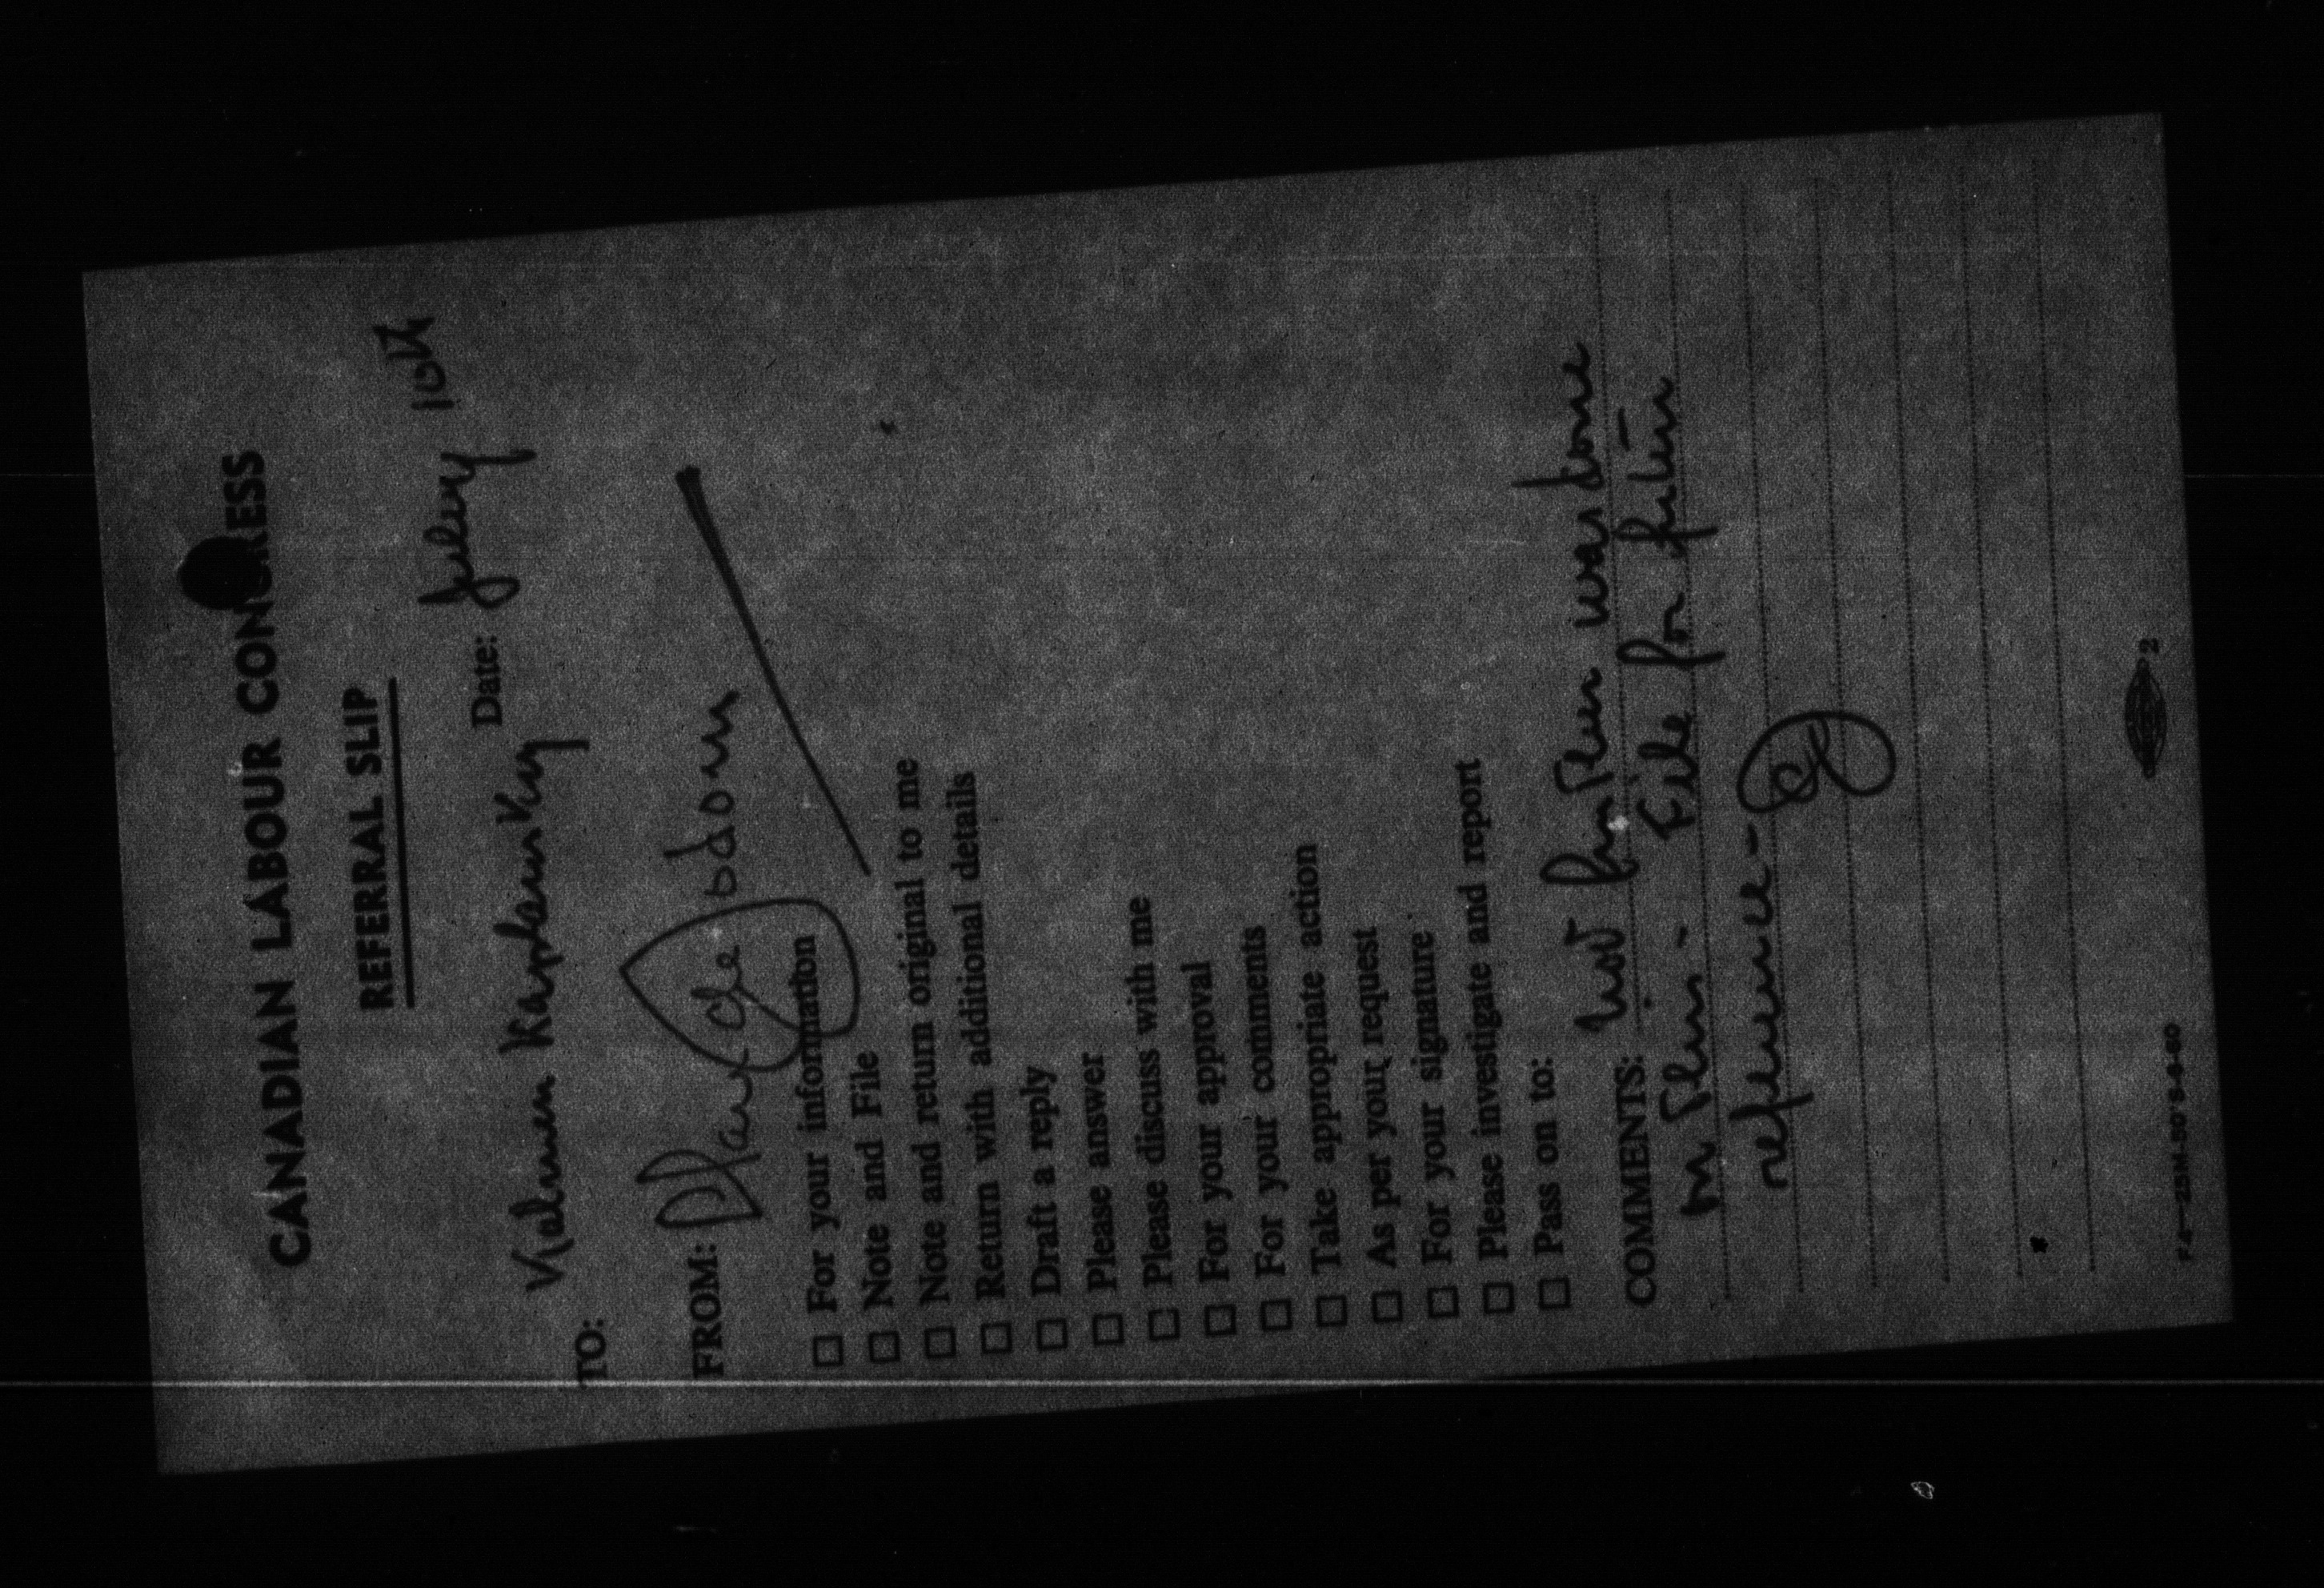 CANADIAN LABOUR CONGRESS
REFERRAL SLIP
Date: July 10th
TO: Kaplansky
FROM:
☐ For your information
☐ Note and File
☐ Note and return original to me
☐ Return with additional details
☐ Draft a reply
☐ Please answer
☐ Please discuss with me
☐ For your approval
☐ For your comments
☐ Take appropriate action
☐ As per your request
☐ For your signature
☐ Please investigate and report
☐ Pass on to:
COMMENTS: Not further was done
in this - File for future
reference -
2